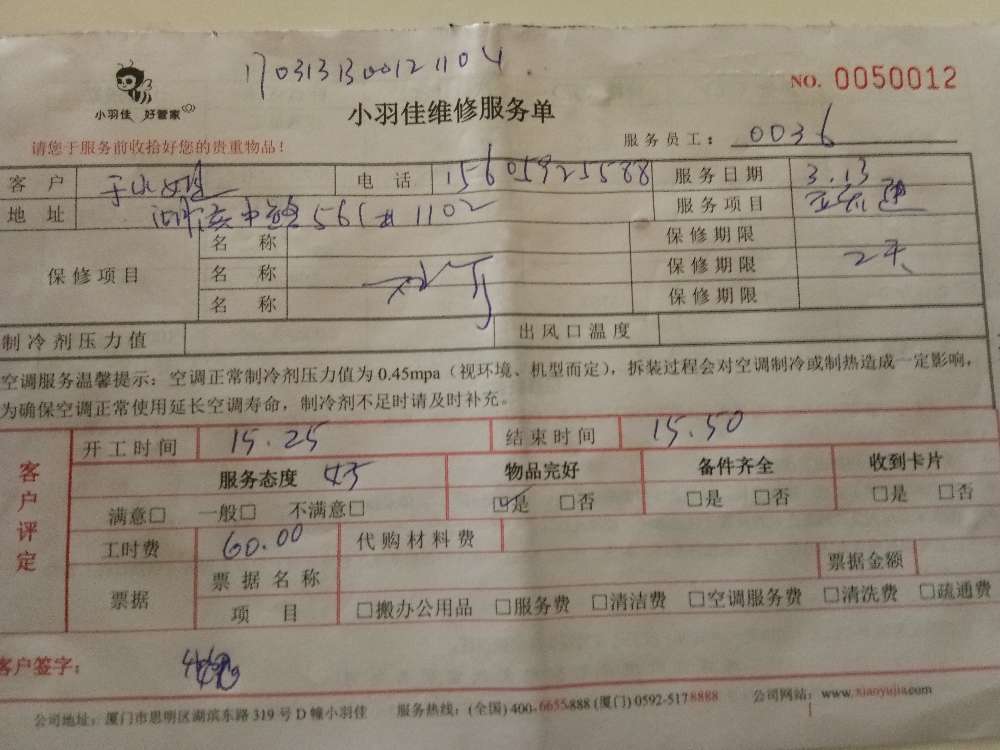 170313130012 1104
NO. 0050012
小羽佳 好管家
小羽佳维修服务单
请您于服务前收拾好您的贵重物品!
服务员工: 0036
客 户 电 话 15605925588 服务日期 3.13
地 址 56 1102 服务项目
保修项目 名 称 保修期限
名 称 保修期限 2天
名 称 保修期限
制冷剂压力值 出风口温度
空调服务温馨提示: 空调正常制冷剂压力值为0.45mpa (视环境、机型而定), 拆装过程会对空调制冷或制热造成一定影响,
为确保空调正常使用延长空调寿命, 制冷剂不足时请及时补充。
客户评定
开工时间 15.25 结束时间 15.50
服务态度 好 物品完好 备件齐全 收到卡片
满意□ 一般□ 不满意□ ☑是 □否 □是 □否 □是 □否
工时费 60.00 代购材料费
票据 票据名称 票据金额
项 目 □搬办公用品 □服务费 □清洁费 □空调服务费 □清洗费 □疏通费
客户签字:
公司地址: 厦门市思明区湖滨东路319号D幢小羽佳 服务热线: (全国) 400-6655-888 (厦门) 0592-5178888 公司网站: www.xiaoyujia.com